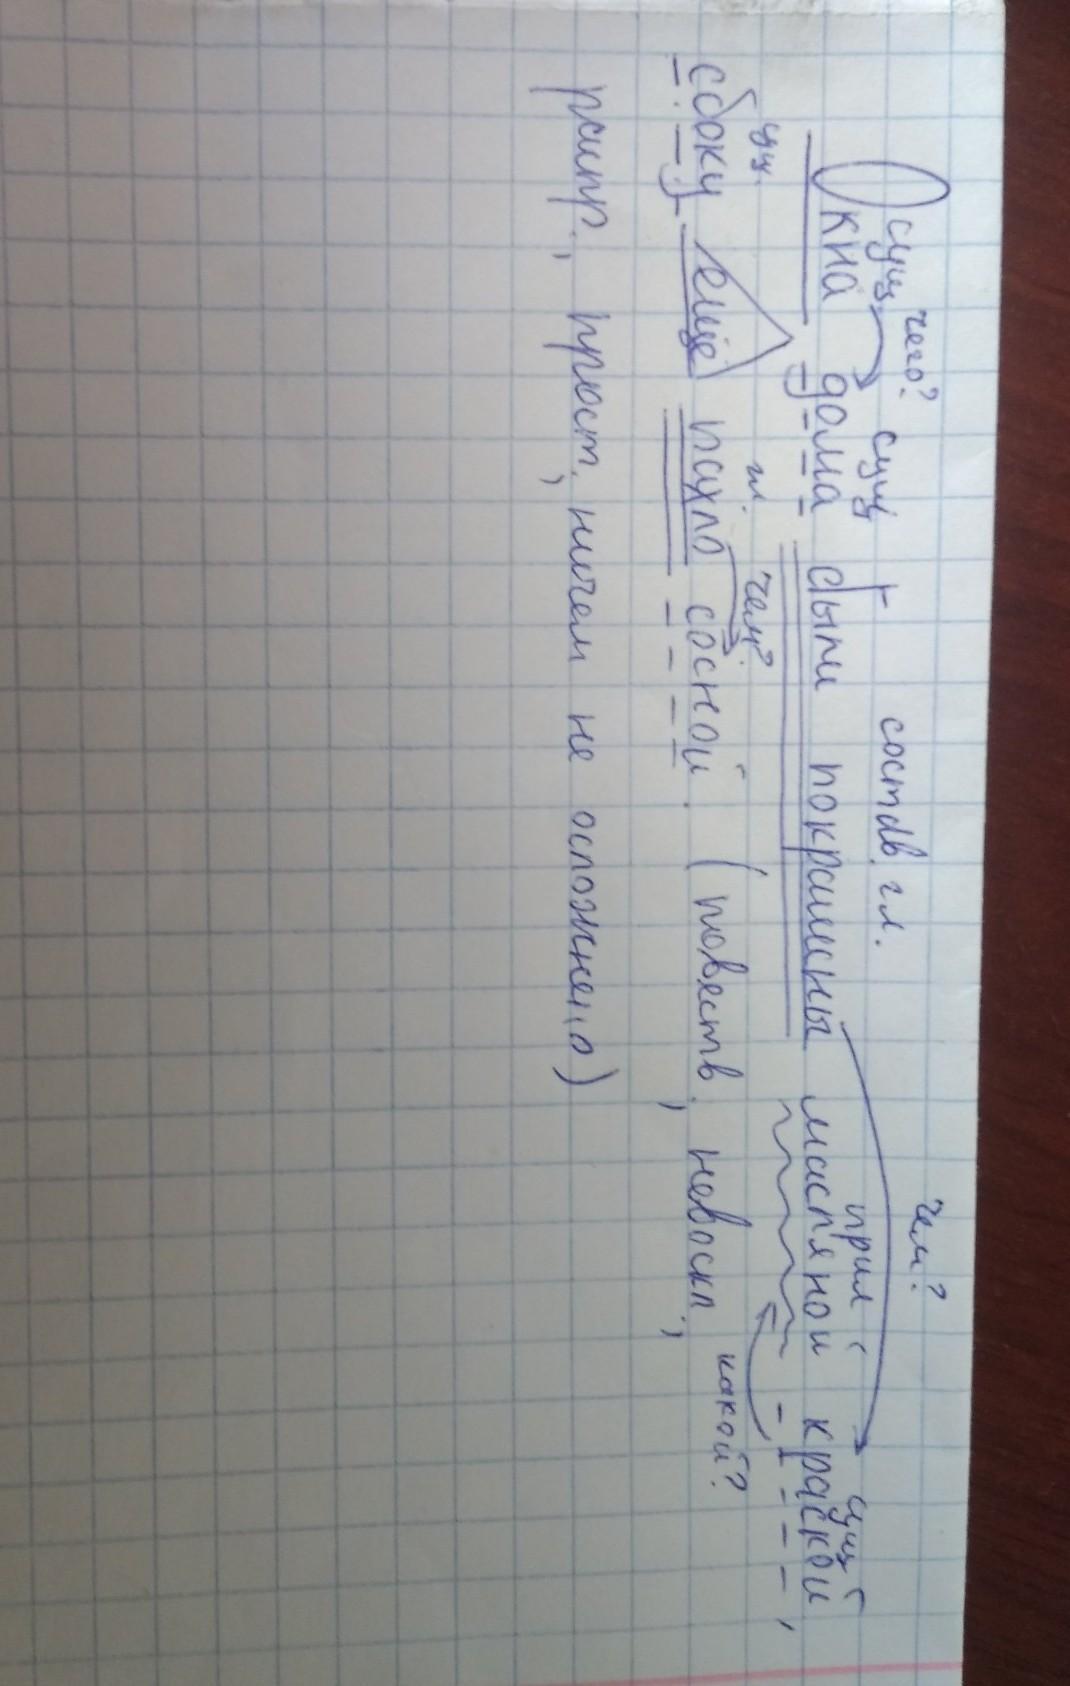 чего? чем?
сущ. сущ состав. гл. прил сущ
Окна дома были покрашены масляной краской,
сущ. гл. чем? какой?
сбоку еще пахло сосной. (повеств., невоскл.,
распр., прост., ничем не осложнено)